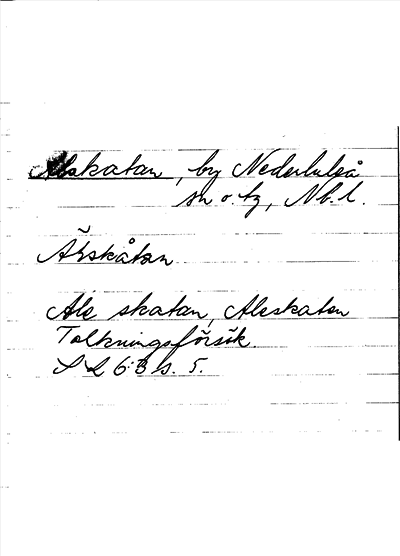 Alskatan, by Nederluleå
sn o. tg, Nb. l.
Ale skatan, Aleskatan
Tolkningsförsök.
S L 6:3 s. 5.